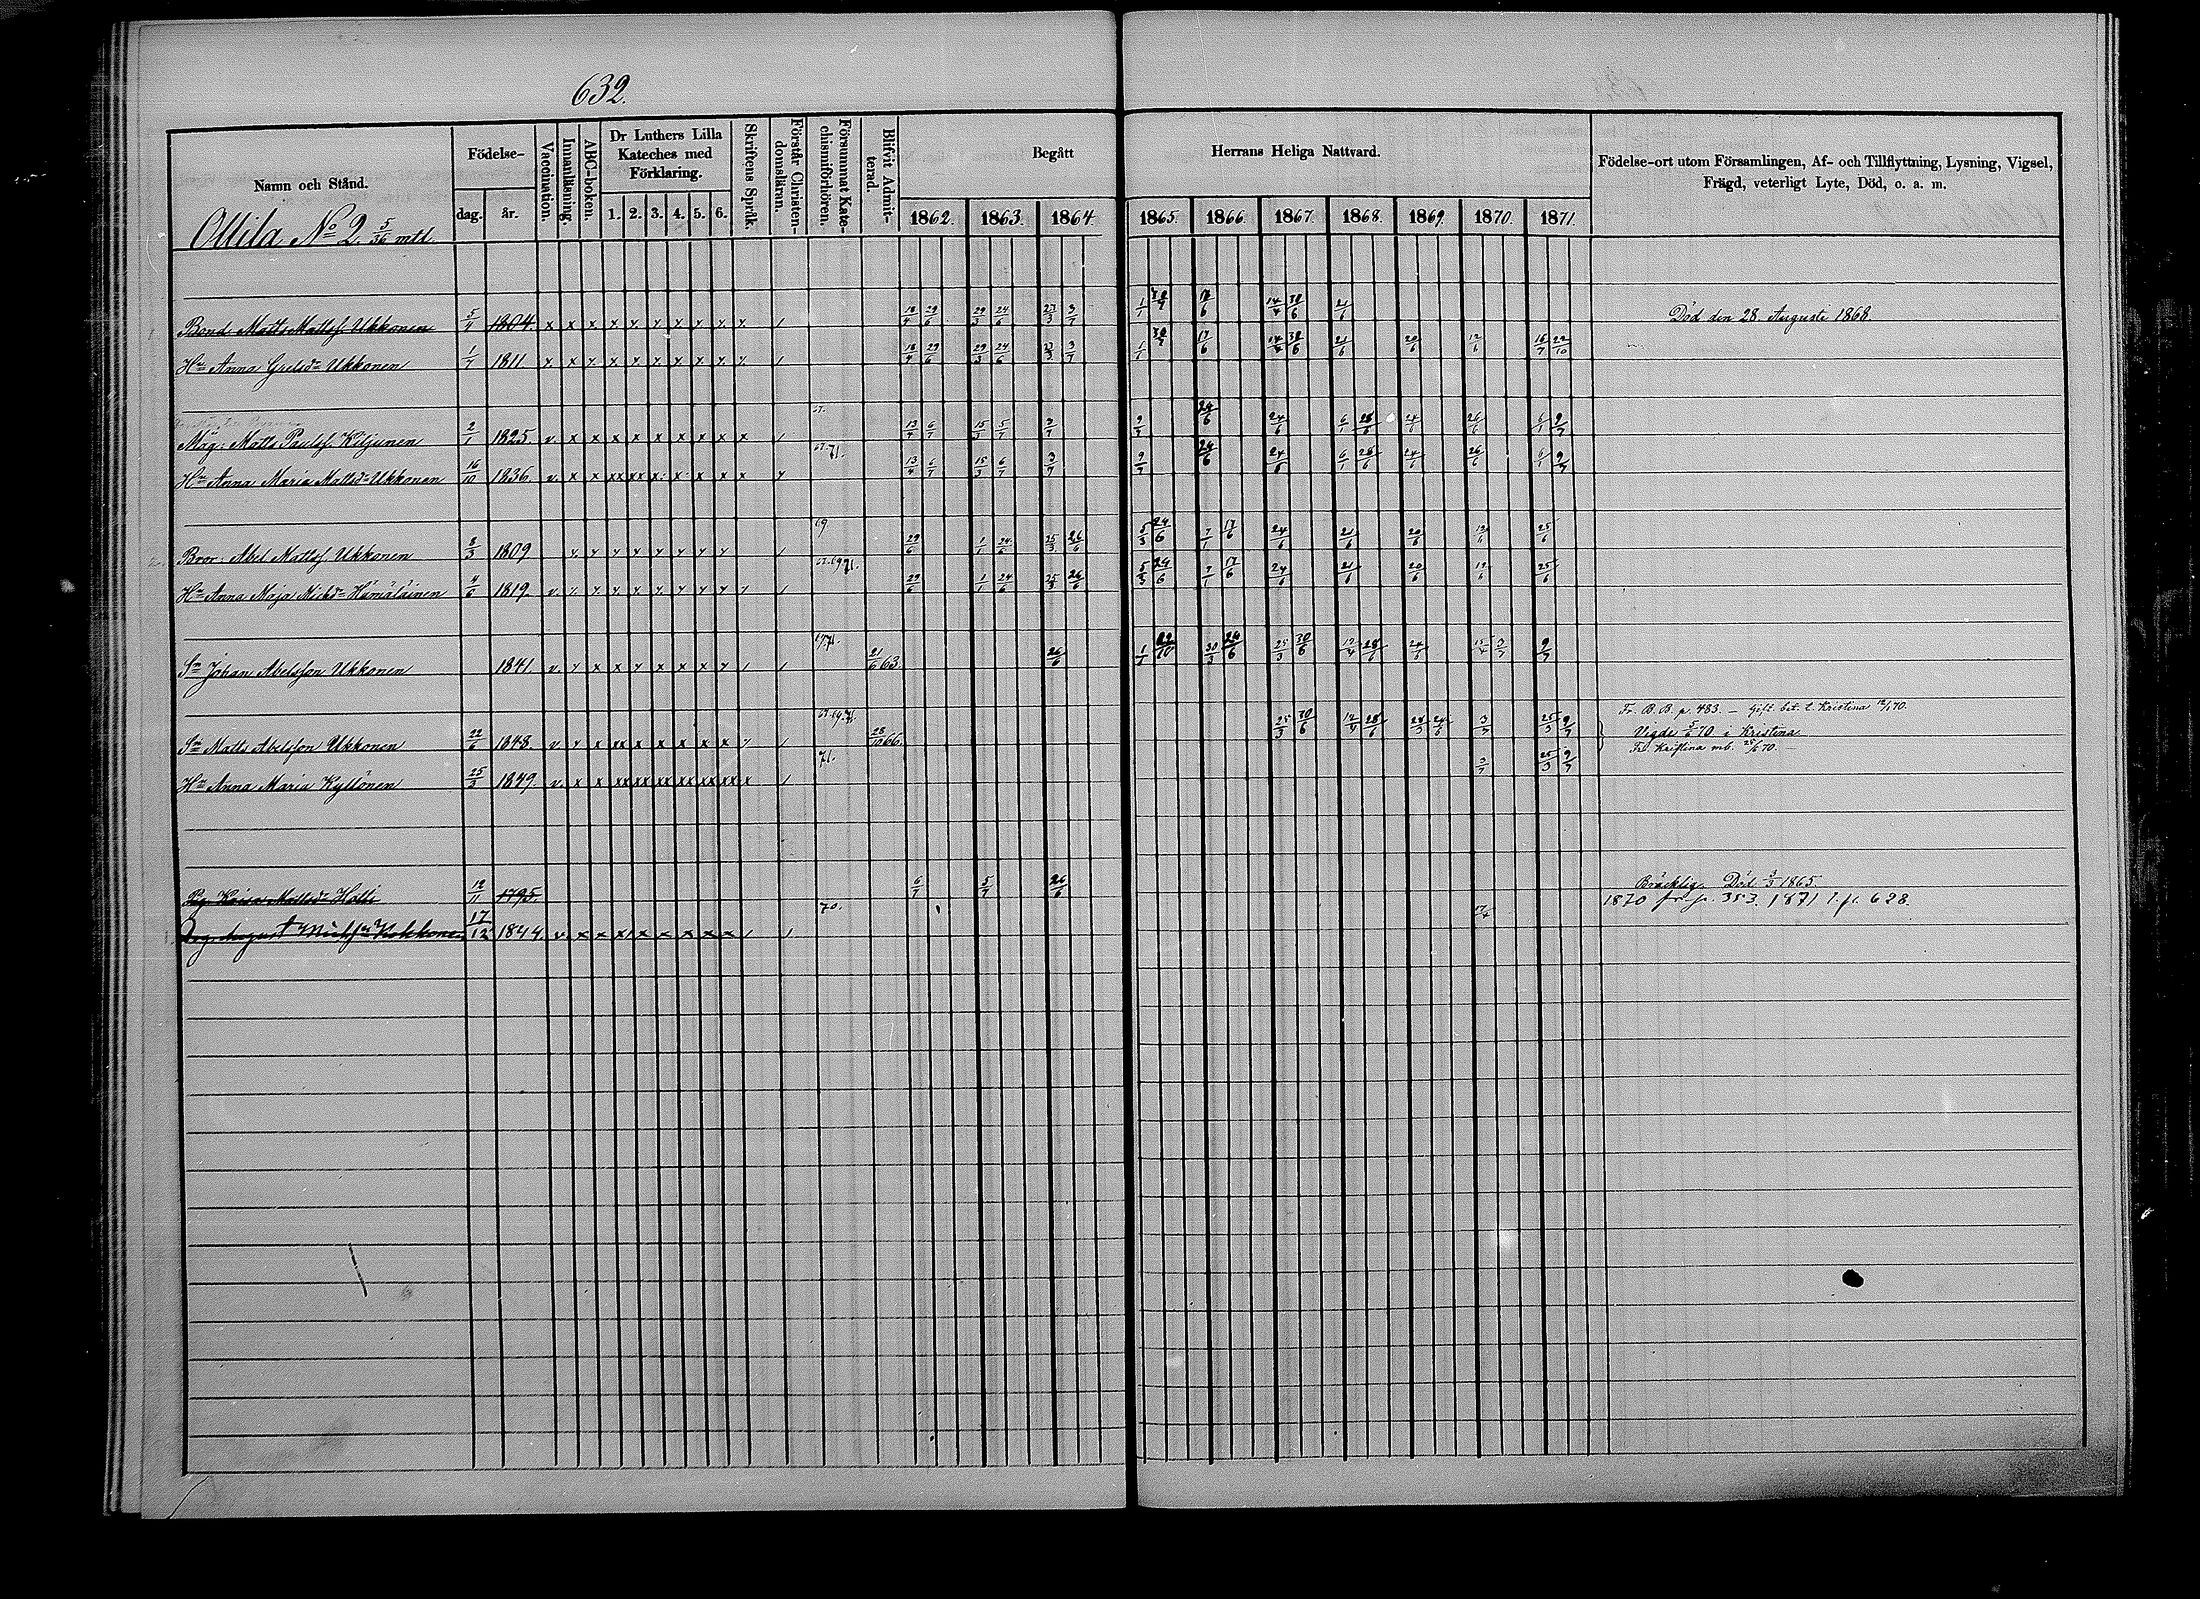 632.
Namn och Stånd. Födelse- dag. år. Vaccination. Innanläsning. ABC-boken. Dr Luthers Lilla Kateches med Förklaring. 1. 2. 3. 4. 5. 6. Skriftens Språk. Förstår Christendomsläran. Försummat Katechismiförhören. Blifvit Admitterad. Begått Herrans Heliga Nattvard. 1862. 1863. 1864. 1865. 1866. 1867. 1868. 1869. 1870. 1871. Födelse-ort utom Församlingen, Af- och Tillflyttning, Lysning, Vigsel, Frägd, veterligt Lyte, Död, o. a. m.
Ollila No 2. 5/36 mtl.
Bond. Matts Mattsf. Ukkonen 5/4 1804. 18/4 29/6 29/3 24/6 27/3 3/7 1/1 17/6 14/4 30/6 21/6 Död den 28. Augusti 1868
Hn Anna Grelsdr Ukkonen 1/7 1811. 18/4 29/6 29/3 24/6 27/3 3/7 1/1 17/6 14/4 30/6 21/6 20/6 12/6 16/7 22/10
Måg: Matts Paulsf. Kiljunen 2/1 1825. 67. 13/4 6/7 15/3 5/7 3/7 9/7 24/6 24/6 6/1 28/6 24/6 26/6 6/1 9/7
Hn Anna Maria Mattsdr Ukkonen 16/10 1836. 67. 71. 13/4 6/7 15/3 6/7 3/7 9/7 24/6 24/6 6/1 28/6 24/6 26/6 6/1 9/7
Bror: Abel Mattsf. Ukkonen 8/3 1809 69 29/6 1/1 24/6 25/3 26/6 5/3 24/6 7/1 17/6 24/6 21/6 20/6 12/6 25/6
Hn Anna Maja Michdr Hämäläinen 4/6 1819. 67. 69 71. 29/6 1/1 24/6 25/3 26/6 5/3 24/6 7/1 17/6 24/6 21/6 20/6 12/6 25/6
Sn Johan Abelsson Ukkonen 1841. 69. 71. 21/6 63. 26/6 1/1 22/10 30/3 24/6 25/3 30/6 12/4 28/6 24/6 15/4 3/7 9/7
Fr. B. B. p. 483. – Gift. bet. t. Kristina 12/1 70.
Sn Matts Abelsson Ukkonen 22/6 1848. 67. 69. 71. 28/10 66. 25/3 30/6 12/4 28/6 28/3 24/6 3/7 25/3 9/7 Vigde 5/6 70 i Kristina
Hn Anna Maria Kyllönen 25/3 1849. 71. 3/7 25/3 9/7 Fr. Kristina mb. 70.
Pig. Kaisa Mattsdr Hatti 12/11 1795. 6/7 5/7 26/6 Bräcklig. Död 3/3 1865.
Drg. August Michsn Kokkonen 17/12 1844. 70. 17/4 1870 fr p. 353. 1871 t. p. 628.